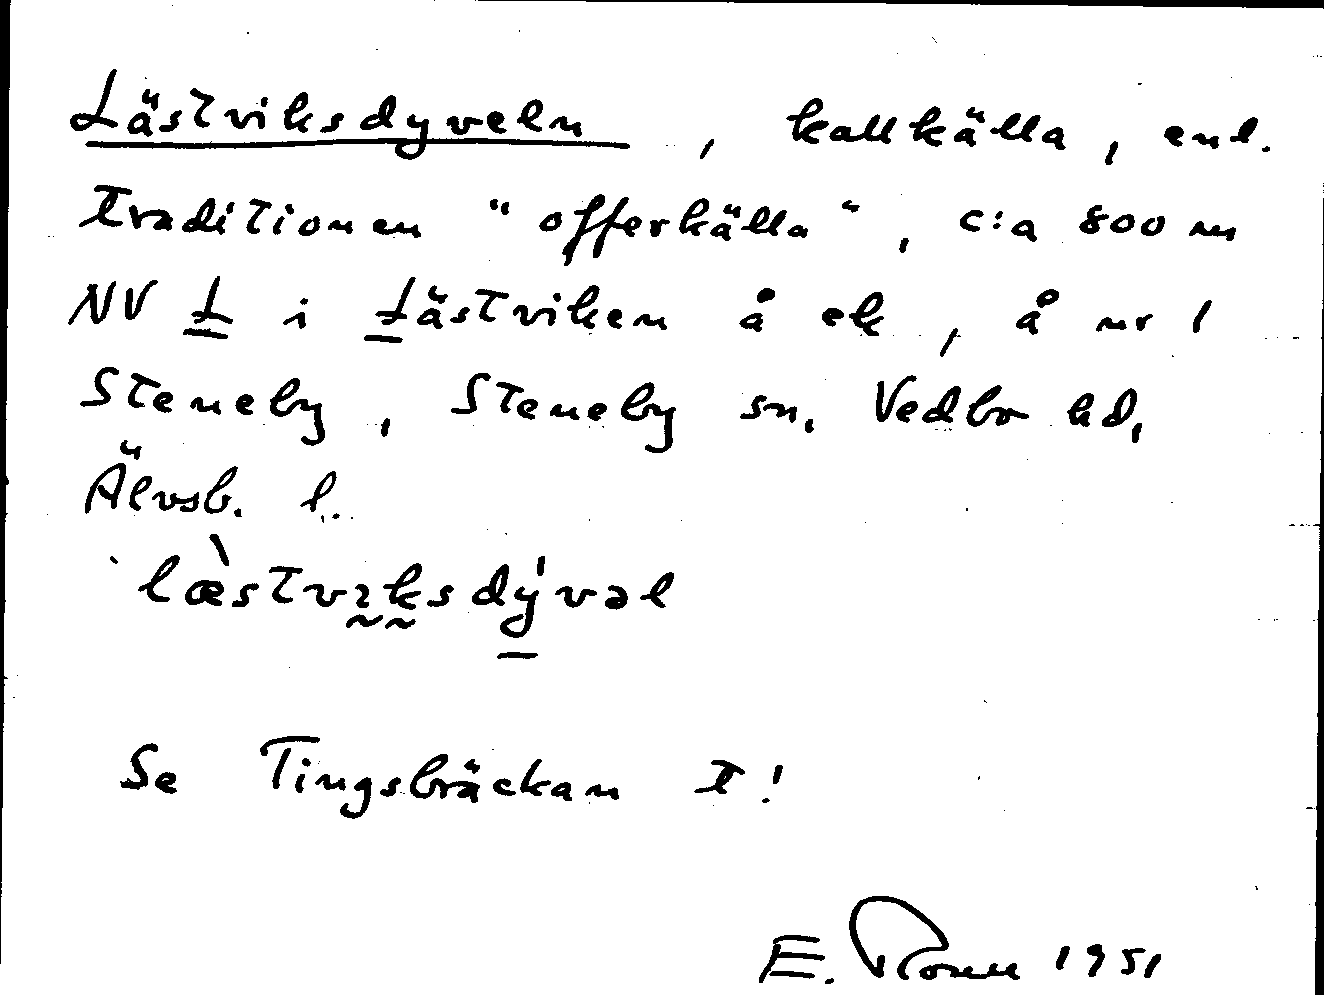 Lästviksdyveln, kallkälla, enl.
traditionen "offerkälla", c:a 800 m
NV L i Lästviken å ek, å nr 1
Steneby, Steneby sn, Vedbo hd,
Älvsb. l.
læ̀stvɪksdývəl
Se Tingsbräckan t!
E. 1951